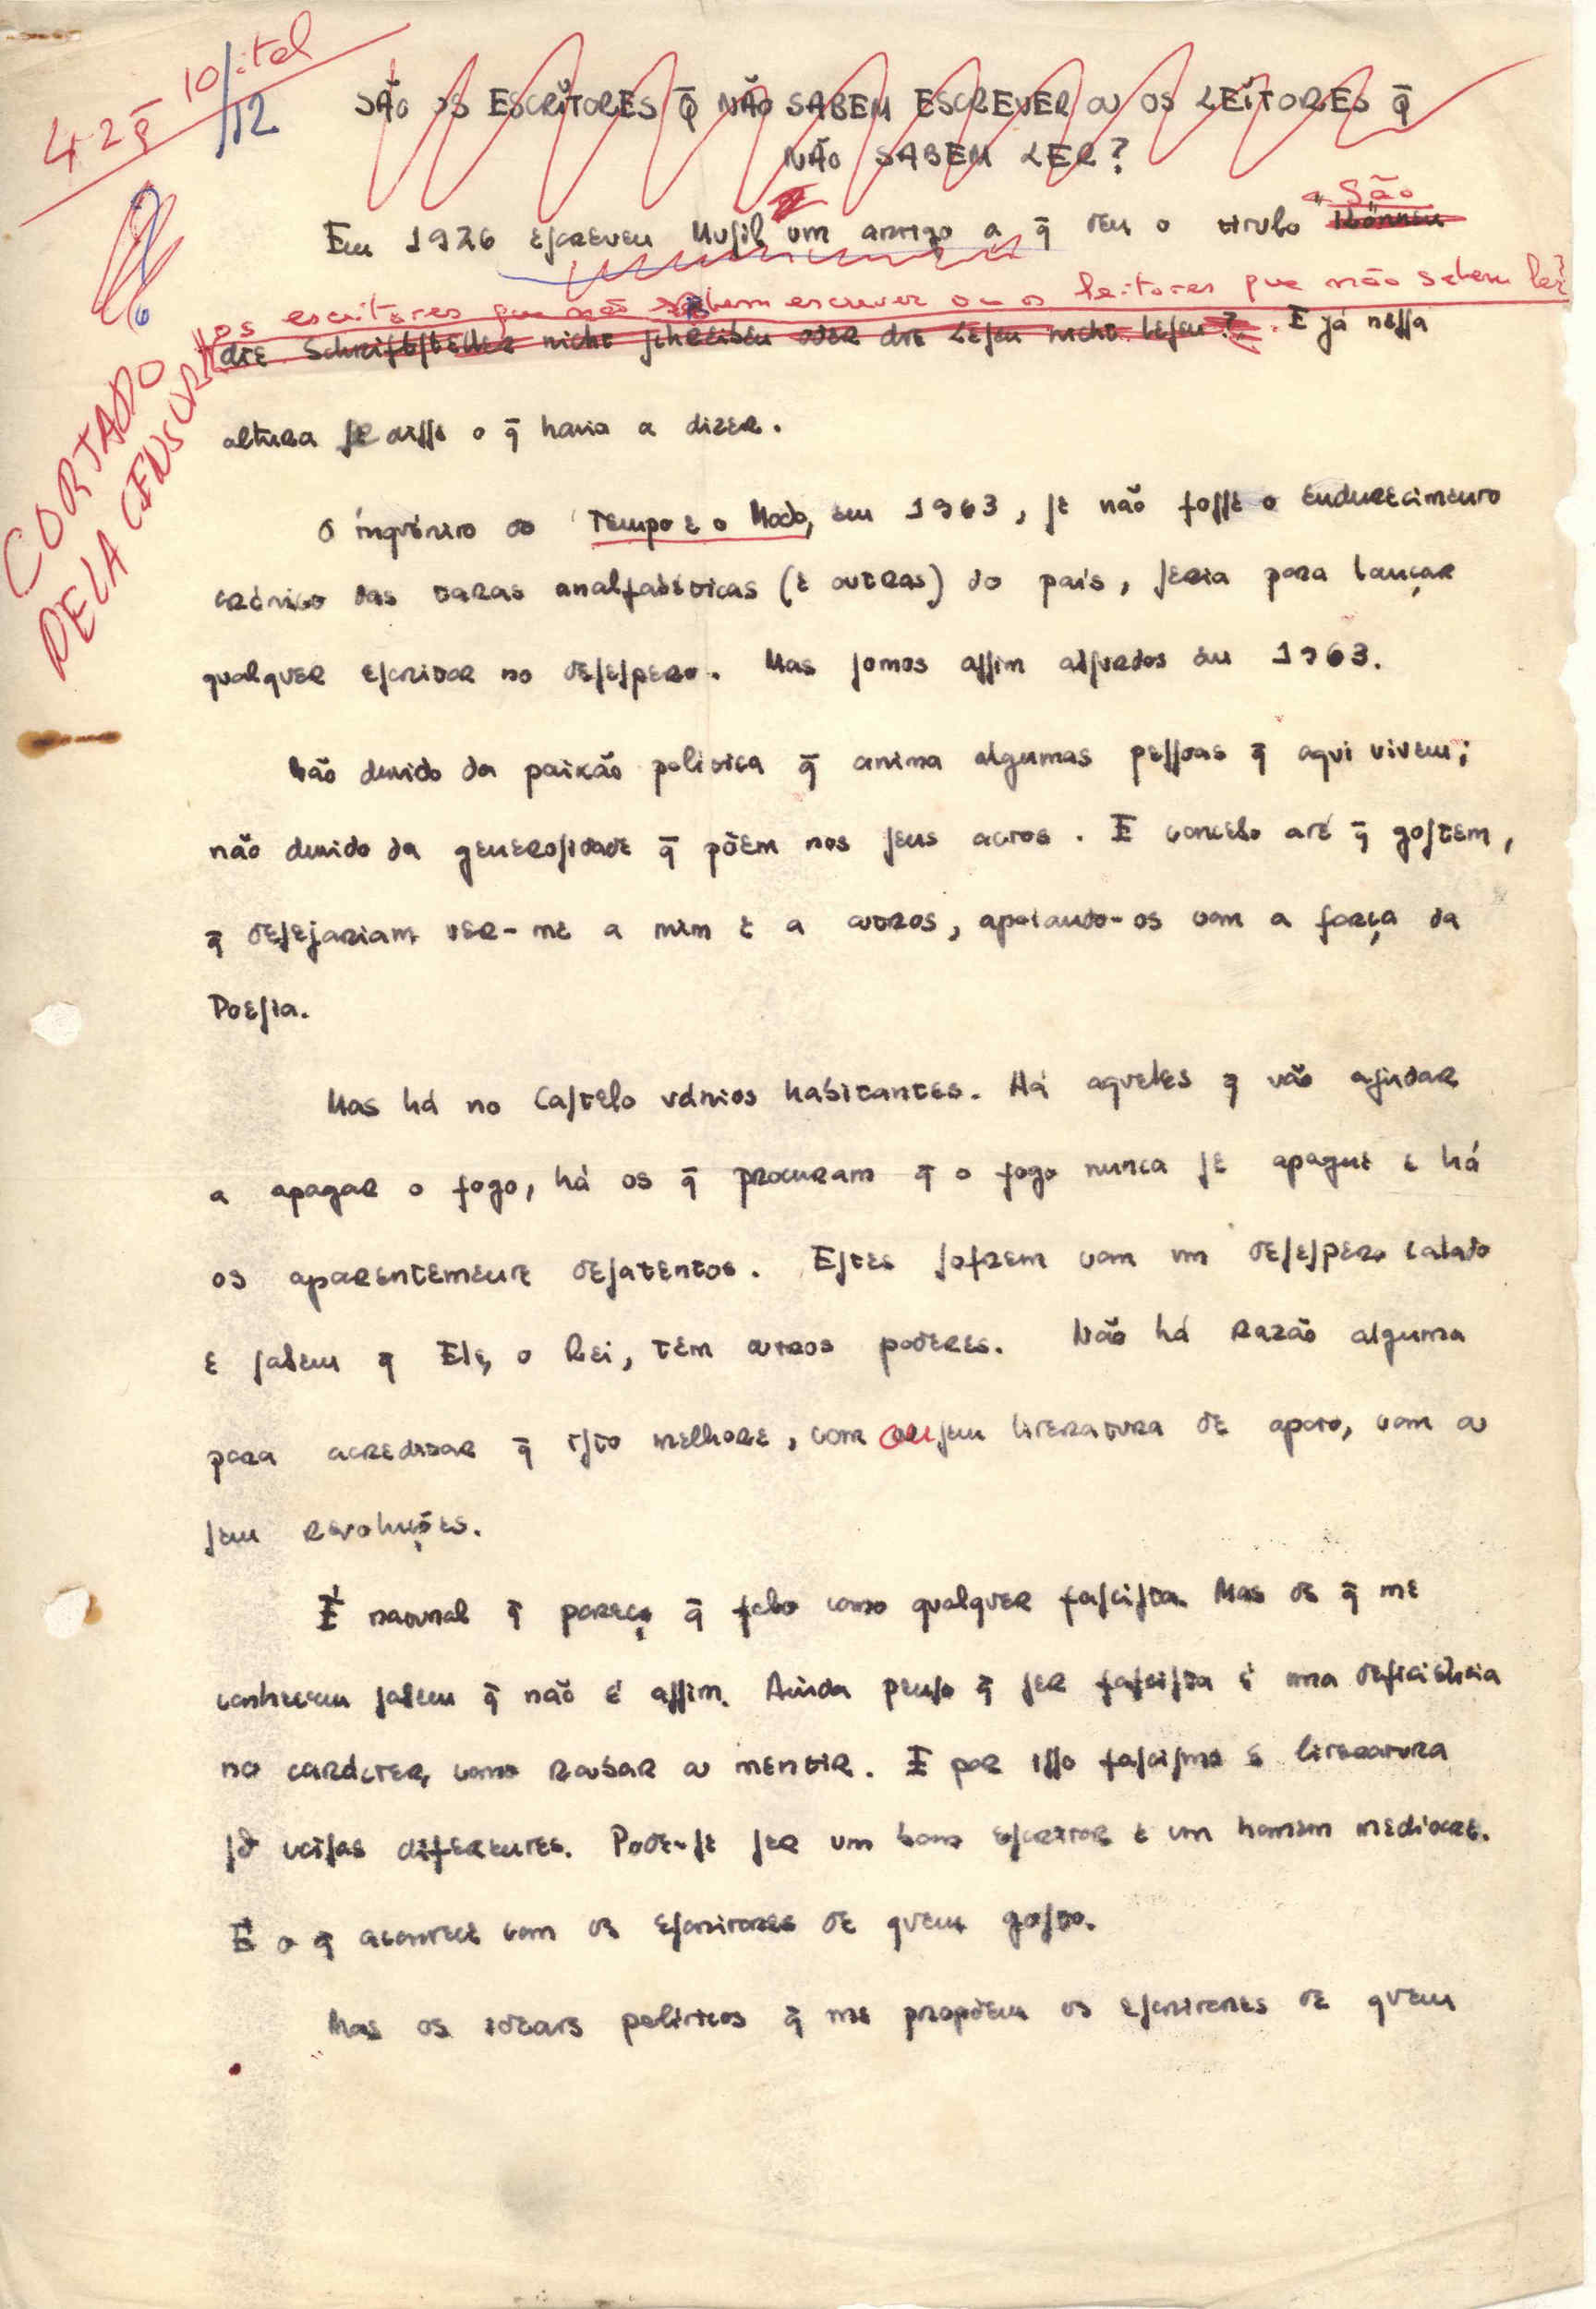 42 q̄ 10/ital
/12
SÃO OS ESCRITORES q̄ NÃO SABEM ESCREVER OU OS LEITORES q̄
NÃO SABEM LER?
Em 1926 escreveu Musil um artigo a q̄ deu o titulo "São Können
os escritores que não sabem escrever ou os leitores que não sabem ler?"
die Schriftsteller nicht schreiben oder die Lesen nicht lesen?. E já nessa
CORTADO
PELA CENSURA
altura se disse o q̄ havia a dizer.
O inquérito do Tempo e o Modo, em 1963, se não fosse o endurecimento
crónico das taras analfabéticas (e outras) do país, seria para lançar
qualquer escritor no desespero. Mas somos assim absurdos em 1963.
Não duvido da paixão politica q̄ anima algumas pessoas q̄ aqui vivem;
não duvido da generosidade q̄ põem nos seus actos. E concebo até q̄ gostem,
q̄ desejariam ver-me a mim e a outros, apoiando-os com a força da
Poesia.
Mas há no Castelo vários habitantes. Há aqueles q̄ vão ajudar
a apagar o fogo, há os q̄ procuram q̄ o fogo nunca se apague e há
os aparentemente desatentos. Estes sofrem com um desespero calado
e sabem q̄ Ele, o Rei, têm outros poderes. Não há razão alguma
para acreditar q̄ isto melhore, com ou sem literatura de apoio, com ou
sem revoluções.
É natural q̄ pareça q̄ falo como qualquer fascista. Mas os q̄ me
conhecem sabem q̄ não é assim. Ainda penso q̄ ser fascista é uma deficiência
no carácter, como roubar ou mentir. E por isso fascismo e literatura
são coisas diferentes. Pode-se ser um bom escritor e um homem mediocre.
É o q̄ acontece com os escritores de quem gosto.
Mas os ideais politicos q̄ me propõem os escritores de quem